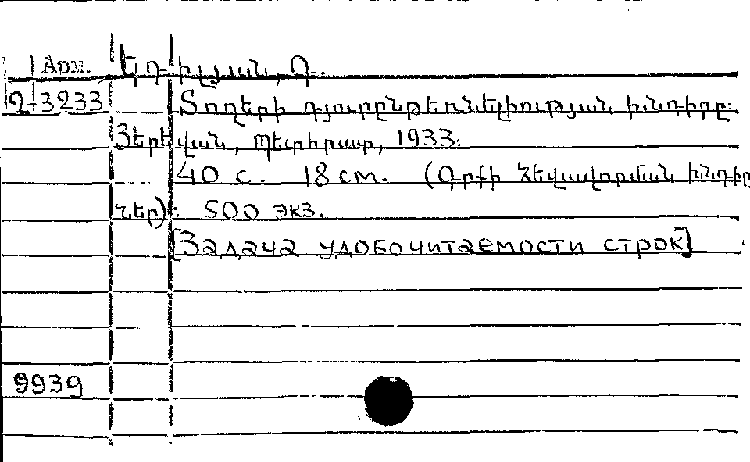 1 Арм. Եդիլյան, Դ.
2-3233 Տողերի դյուրընթեռնելիության խնդիրը.
Յերեվան, Պետհրատ, 1933.
40 с. 18 см. (Գրքի ձեվավորման խնդիր
ներ). 500 экз.
[Задача удобочитаемости строк]
9939